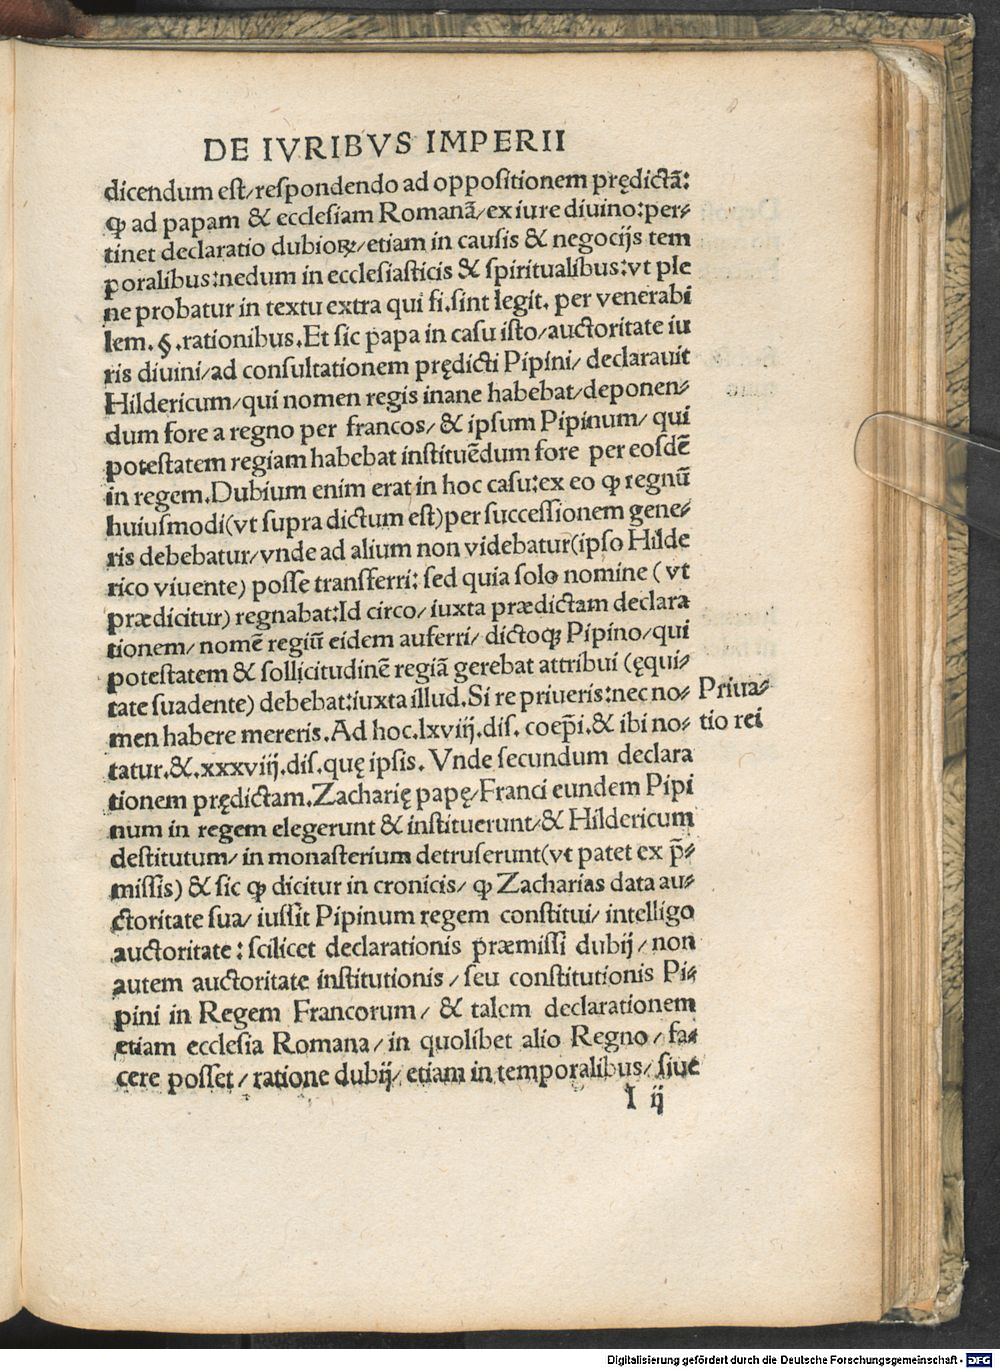 DE IVRIBVS IMPERII
dicendum est/respondendo ad oppositionem prędictã:
ꝙ ad papam & ecclesiam Romanã/ex iure diuino:per⸗
tinet declaratio dubioꝝ/etiam in causis & negocijs tem
poralibus:nedum in ecclesiasticis & spiritualibus:vt ple
ne probatur in textu extra qui fi.sint legit. per venerabi
lem. §.rationibus.Et sic papa in casu isto/auctoritate iu
ris diuini/ad consultationem prędicti Pipini/ declarauit
Hildericum/qui nomen regis inane habebat/deponen⸗
dum fore a regno per francos/& ipsum Pipinum/ qui
potestatem regiam habebat instituẽdum fore per eosdẽ
in regem.Dubium enim erat in hoc casu:ex eo ꝙ regnũ
huiusmodi(vt supra dictum est)per successionem gene⸗
ris debebatur/vnde ad alium non videbatur(ipso Hilde
rico viuente) posse transferri: sed quia solo nomine ( vt
prædicitur) regnabat:Id circo/ iuxta prædictam declara
tionem/nomẽ regiũ eidem auferri/ dictoqꝫ Pipino/qui
potestatem & sollicitudinẽ regiã gerebat attribui (ęqui⸗
tate suadente) debebat:iuxta illud.Si re priueris:nec no⸗ Priua⸗
men habere mereris.Ad hoc.lxviij.dis. coep̃i.& ibi no⸗ tio rei
tatur.&.xxxviij.dis.quę ipsis. Vnde secundum declara
tionem prędictam.Zacharię papę/Franci eundem Pipi
num in regem elegerunt & instituerunt/& Hildericum
destitutum/ in monasterium detruserunt(vt patet ex p̃⸗
missis) & sic ꝙ dicitur in cronicis/ ꝙ Zacharias data au⸗
ctoritate sua/ iussit Pipinum regem constitui/ intelligo
auctoritate: scilicet declarationis præmissi dubij/ non
autem auctoritate institutionis/seu constitutionis Pi⸗
pini in Regem Francorum/ & talem declarationem
etiam ecclesia Romana/in quolibet alio Regno/fa⸗
cere posset/ratione dubij/etiam in temporalibus/siue
I ij
Digitalisierung gefördert durch die Deutsche Forschungsgemeinschaft - DFG